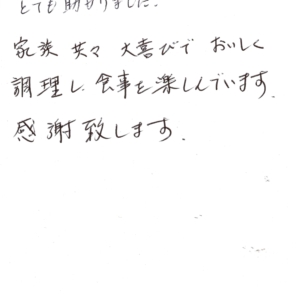 とても助かりました.
家族 共々 大喜びで おいしく
調理し 食事を楽しんでいます.
感謝致します.